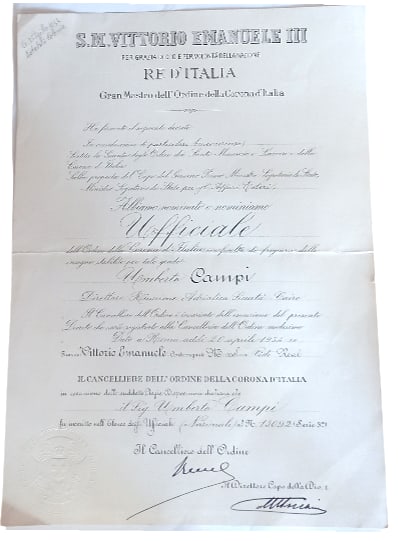 S.M. VITTORIO EMANUELE III
PER GRAZIA DI DIO E PER VOLONTÀ DELLA NAZIONE
RE D'ITALIA
Gran Mastro dell'Ordine della Corona d'Italia
Ha firmato il seguente decreto
In considerazione di particolari benemerenze
Sentita la Giunta degli Ordini dei Santi Maurizio e Lazzaro e della
Corona d'Italia
Sulla proposta del Capo del Governo Primo Ministro Segretario di Stato,
Ministro Segretario di Stato per gli Affari Esteri
Abbiamo nominato e nominiamo
Ufficiale
dell'Ordine della Corona d'Italia con facoltà di fregiarsi delle
insegne stabilite per tale grado
Umberto Campi
Direttore Adriatica Cairo
Il Cancelliere dell'Ordine è incaricato dell'esecuzione del presente
Decreto che sarà registrato alla Cancelleria dell'Ordine medesimo
Dato a Roma addì aprile
Vittorio Emanuele
IL CANCELLIERE DELL'ORDINE DELLA CORONA D'ITALIA
in esecuzione del suddetto Regio Decreto dichiara che
il Sig. Umberto Campi
fu inscritto nell'Elenco degli Ufficiali (Nazionali) al N. 13092 Serie
Il Cancelliere dell'Ordine
Il Direttore Capo della Div.